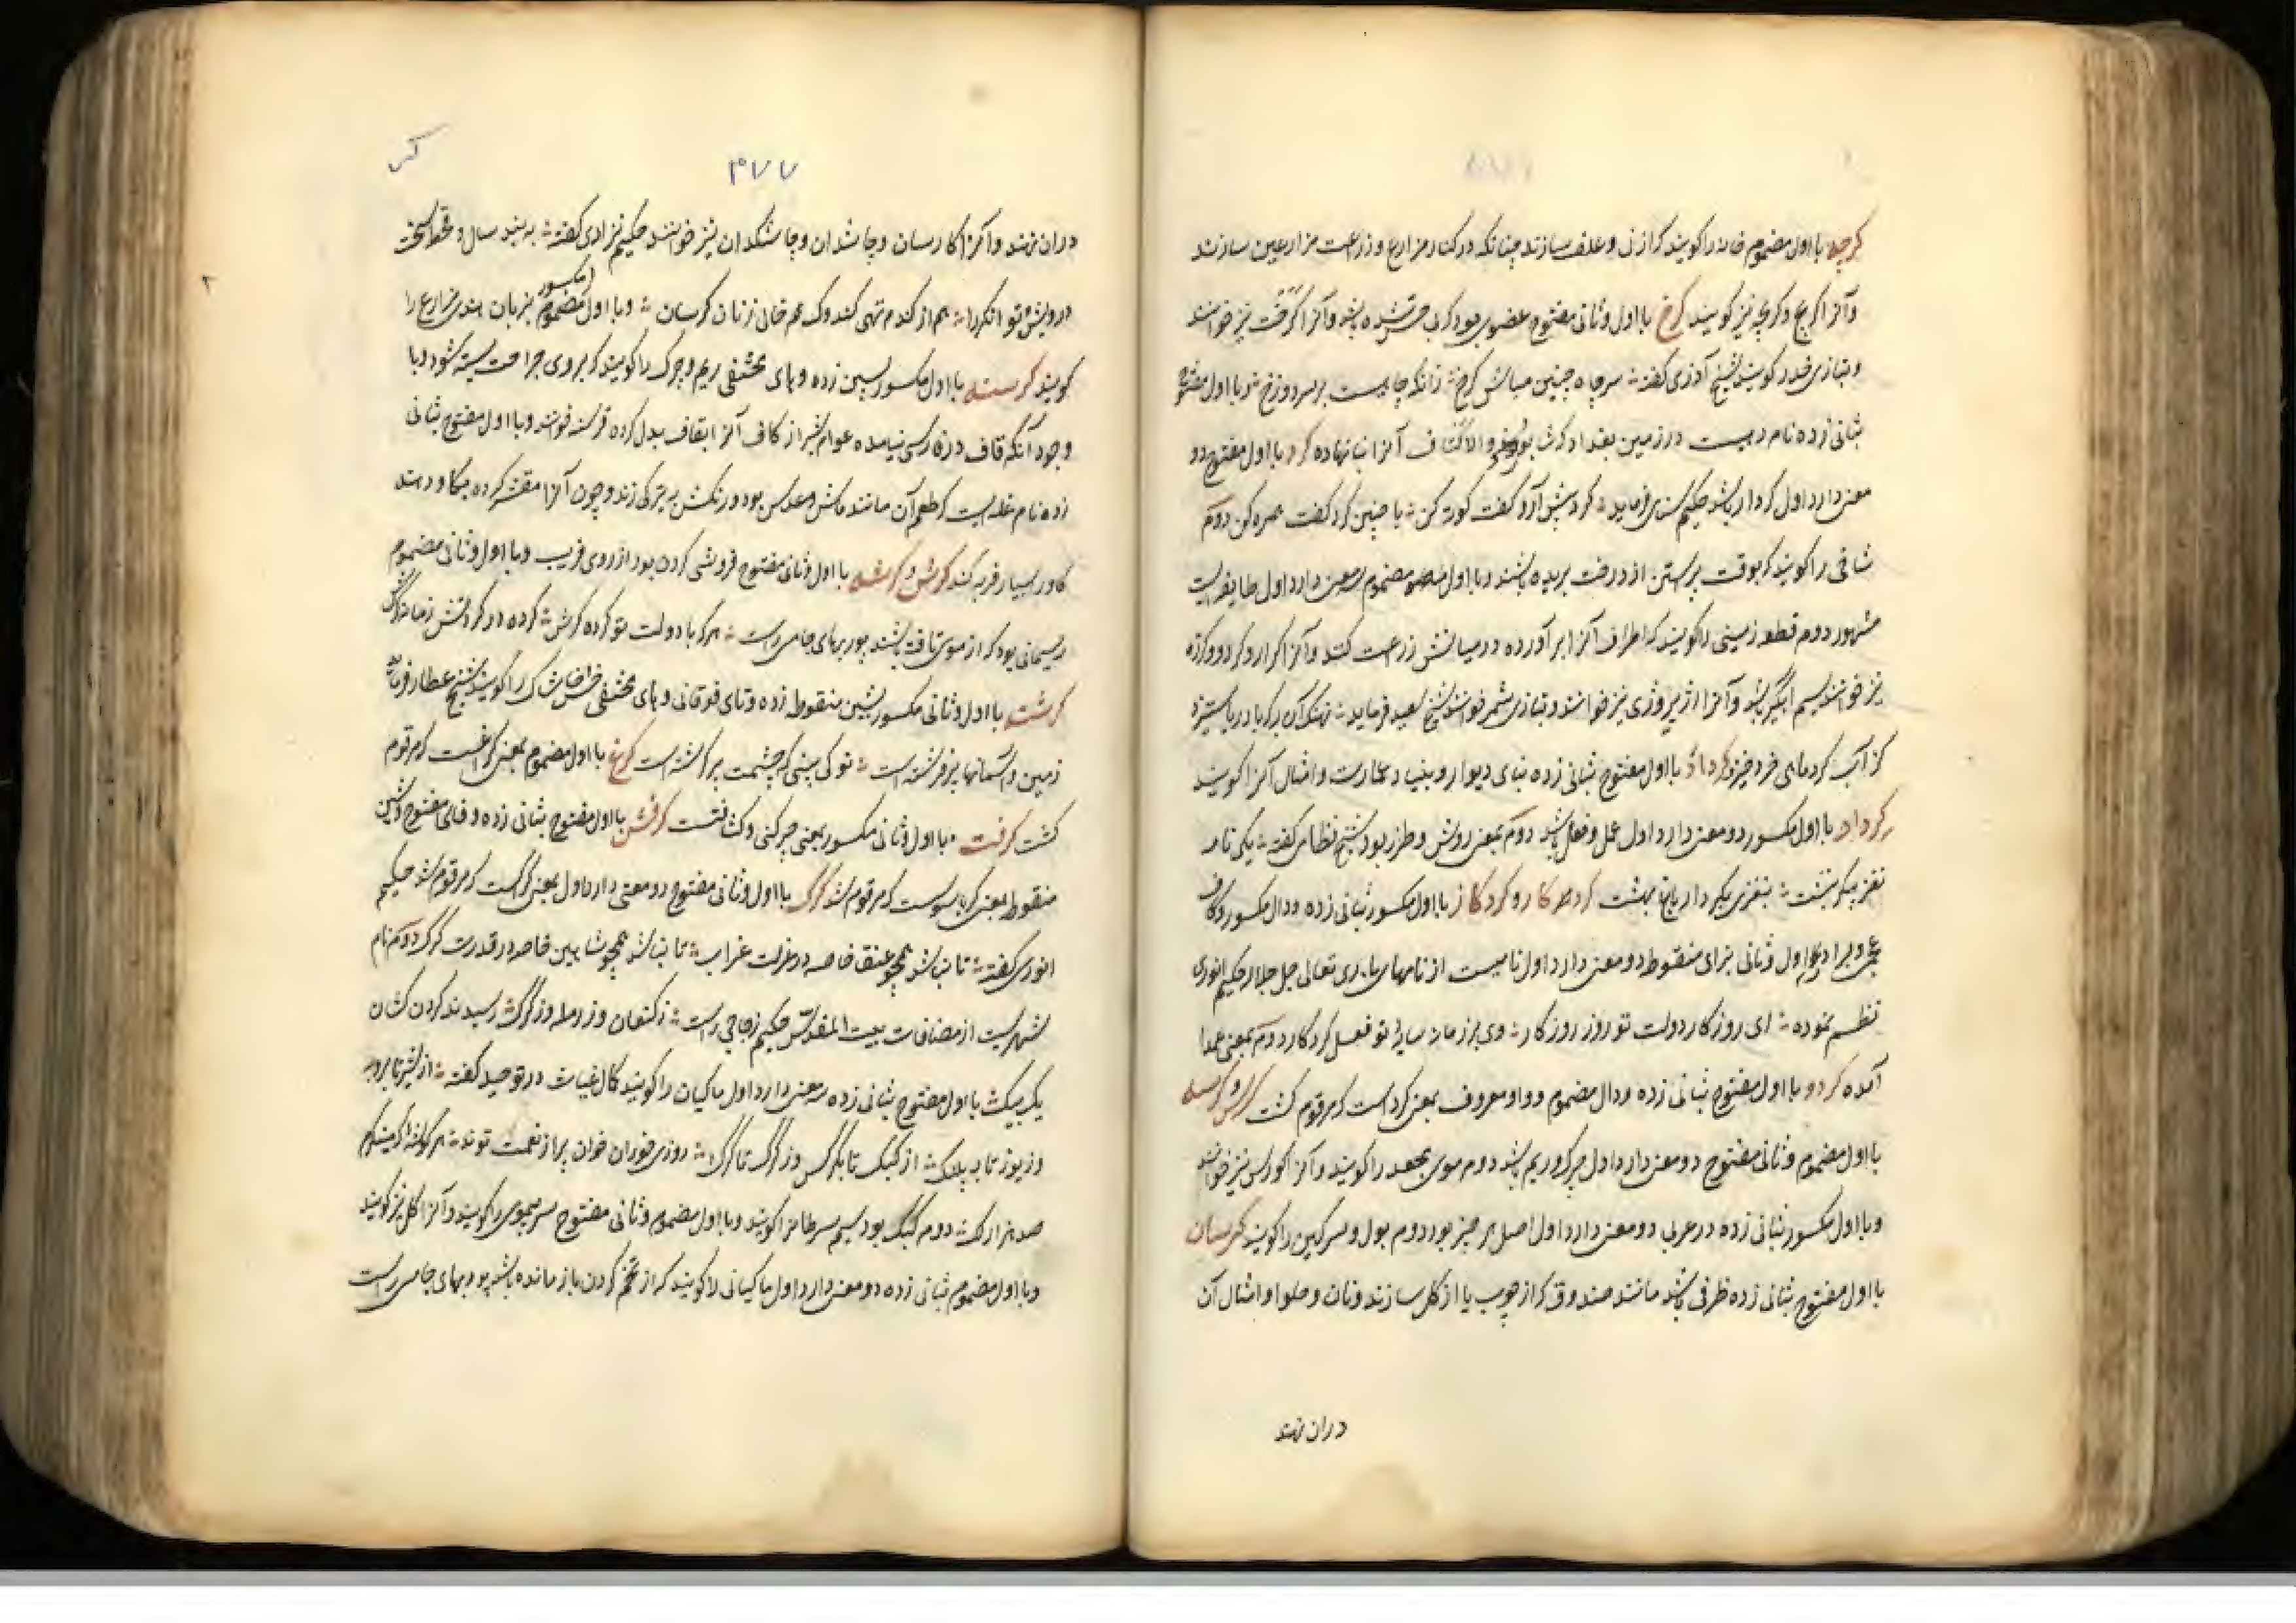 کرچه با اول مضموم خانه را کویند که از نی و علف سازند چنانکه در کنار مزارع و زراعت مزارعین سازند
و آنرا کرپج و کرپچه نیز کویند کرخ با اول و ثانی مفتوح عضوی بود که بی حس شده باشد و آنرا کرخت نیز خوانند
و بتازی خدر کویند شیخ آذری کفته سر چاه چنین مباش کرخ زانکه چاهیست بر سر دوزخ و با اول مفتوح
بثانی زده نام دهیست در زمین بغداد که شاپور ذو الاکتاف آنرا بنا نهاده کرد با اول مفتوح دو
معنی دارد اول کردار باشد حکیم سنای فرماید کرد پیش آرو کفت کوته کن با چنین کرد کفت همره کن دوم
شاخی را کویند که بوقت پیراستن از درخت بریده باشند و با اول مضموم سه معنی دارد اول طایفه ایست
مشهور دوم قطعه زمینی را کویند که اطراف آنرا بر آورده در میانش زراعت کنند و آنرا کرار و کردو و کرزه
نیز خوانند سیم آبگیر باشد و آنرا اژیر و ژی نیز خوانند و بتازی شمر خوانند شیخ سعید فرماید نهنک آن به که با دریا ستیزد
کز آب کرد ماهی خرد خیزد کرداد با اول مفتوح بثانی زده بنای دیوار و بنیاد عمارت و امثال آنرا کویند
کرداد با اول مکسور دو معنی دارد اول عمل و فعل باشد دوم بمعنی روش و طرز بود شیخ نظامی کفته یکی نامه
نغز پیکر نبشت بنغزی بکردار باغ بهشت کردکار و کردکار با اول مکسور بثانی زده و دال مکسور و کاف
عجمی و برای اول و ثانی بزای منقوط دو معنی دارد اول نامیست از نامهای باری تعالی جل جلاله حکیم انوری
نظم نموده ای روزکار دولت تو روز روزکار وی بر زمانه سایه تو فعل کردکار دوم بمعنی عمدا
آمده کردو با اول مفتوح بثانی زده و دال مضموم و واو معروف بمعنی کرد است که مرقوم کشت کرس و کرسه
با اول مضموم و ثانی مفتوح دو معنی دارد اول چرک و ریم باشد دوم موی مجعد را کویند و آنرا کورس نیز خوانند
و با اول مکسور بثانی زده در عربی دو معنی دارد اول اصل هر چیز بود دوم بول و سرکین را کویند کرسان
با اول مفتوح بثانی زده ظرفی باشد مانند صندوق که از چوب یا از کل سازند و نان و حلوا و امثال آن
دران نهند
کر
۴۷۷
دران نهند و آنرا کارسان و چاشدان و چاشکدان نیز خوانند حکیم نزاری کفته به بیند سال و قحط سخت
درویش و توانکر را هم از کندم تهی کندوک هم خالی ز نان کرسان و با اول مضموم بزبان هندی مزارع را
مکسور
کویند کرسته با اول مکسور بسین زده و های مختفی ریم و چرک را کویند که بر روی جراحت بسته شود و با
وجود آنکه قاف در فارسی نیامده عوام شیراز کاف آنرا بقاف بدل کرده قرسنه خوانند و با اول مفتوح بثانی
زده نام غله ایست که طعم آن مانند ماش و عدس بود و رنکش به تیرکی زند و چون آنرا مقشر کرده بکاو دهند
کاو را بسیار فربه کند کرش و کرشه با اول و ثانی مفتوح فروتنی کردن بود از روی فریب و با اول و ثانی مضموم
ریسمانی بود که از موی تافته باشند پور بهای جامی راست هر که با دولت تو کرده کرش کرده در کردنش زمانه کرش
کرشته با اول و ثانی مکسور بشین منقوط زده و تای فوقانی و های مختفی خس و خاشاک را کویند شیخ عطار فرماید
زمین و آسمانها پر فرشته است تو کی بینی که چشمت پر کرشته است کرغ با اول مضموم بمعنی کراغست که مرقوم
کشت کرفت با اول و ثانی مکسور بمعنی چرکنی و کثافتست کرفش با اول مفتوح بثانی زده و فای مفتوح و شین
منقوط بمعنی کرباسوست که مرقوم شد کرک با اول و ثانی مفتوح دو معنی دارد اول بمعنی کرکست که مرقوم شد حکیم
انوری کفته تا نباشد همچو عنقا خاصه در عزلت غراب تا نباشد همچو شاهین خاصه در قدرت کرک دوم نام
شهریست از مضافات بیت المقدس حکیم زجاجی راست ز کنعان و ز رمله وز کرکش رسیدند کردن کشان
یک بیکش با اول مفتوح بثانی زده سه معنی دارد اول ماکیان را کویند کمال غیاث در توحید کفته از شیر تا بروبه
وز یوز تا به پلنک از کبک تا بکرکس وز کرک تا کرک روزی خوران خوان پر از نعمت تواند هر کوشه اکر مینکرم
صد هزار لک دوم کبک بود سیم سرطانرا کویند و با اول مضموم و ثانی مفتوح سر بیموی را کویند و آنرا کل نیز کویند
و با اول مضموم بثانی زده دو معنی دارد اول ماکیانی را کویند که از تخم کردن باز مانده باشد پور بهای جامی راست